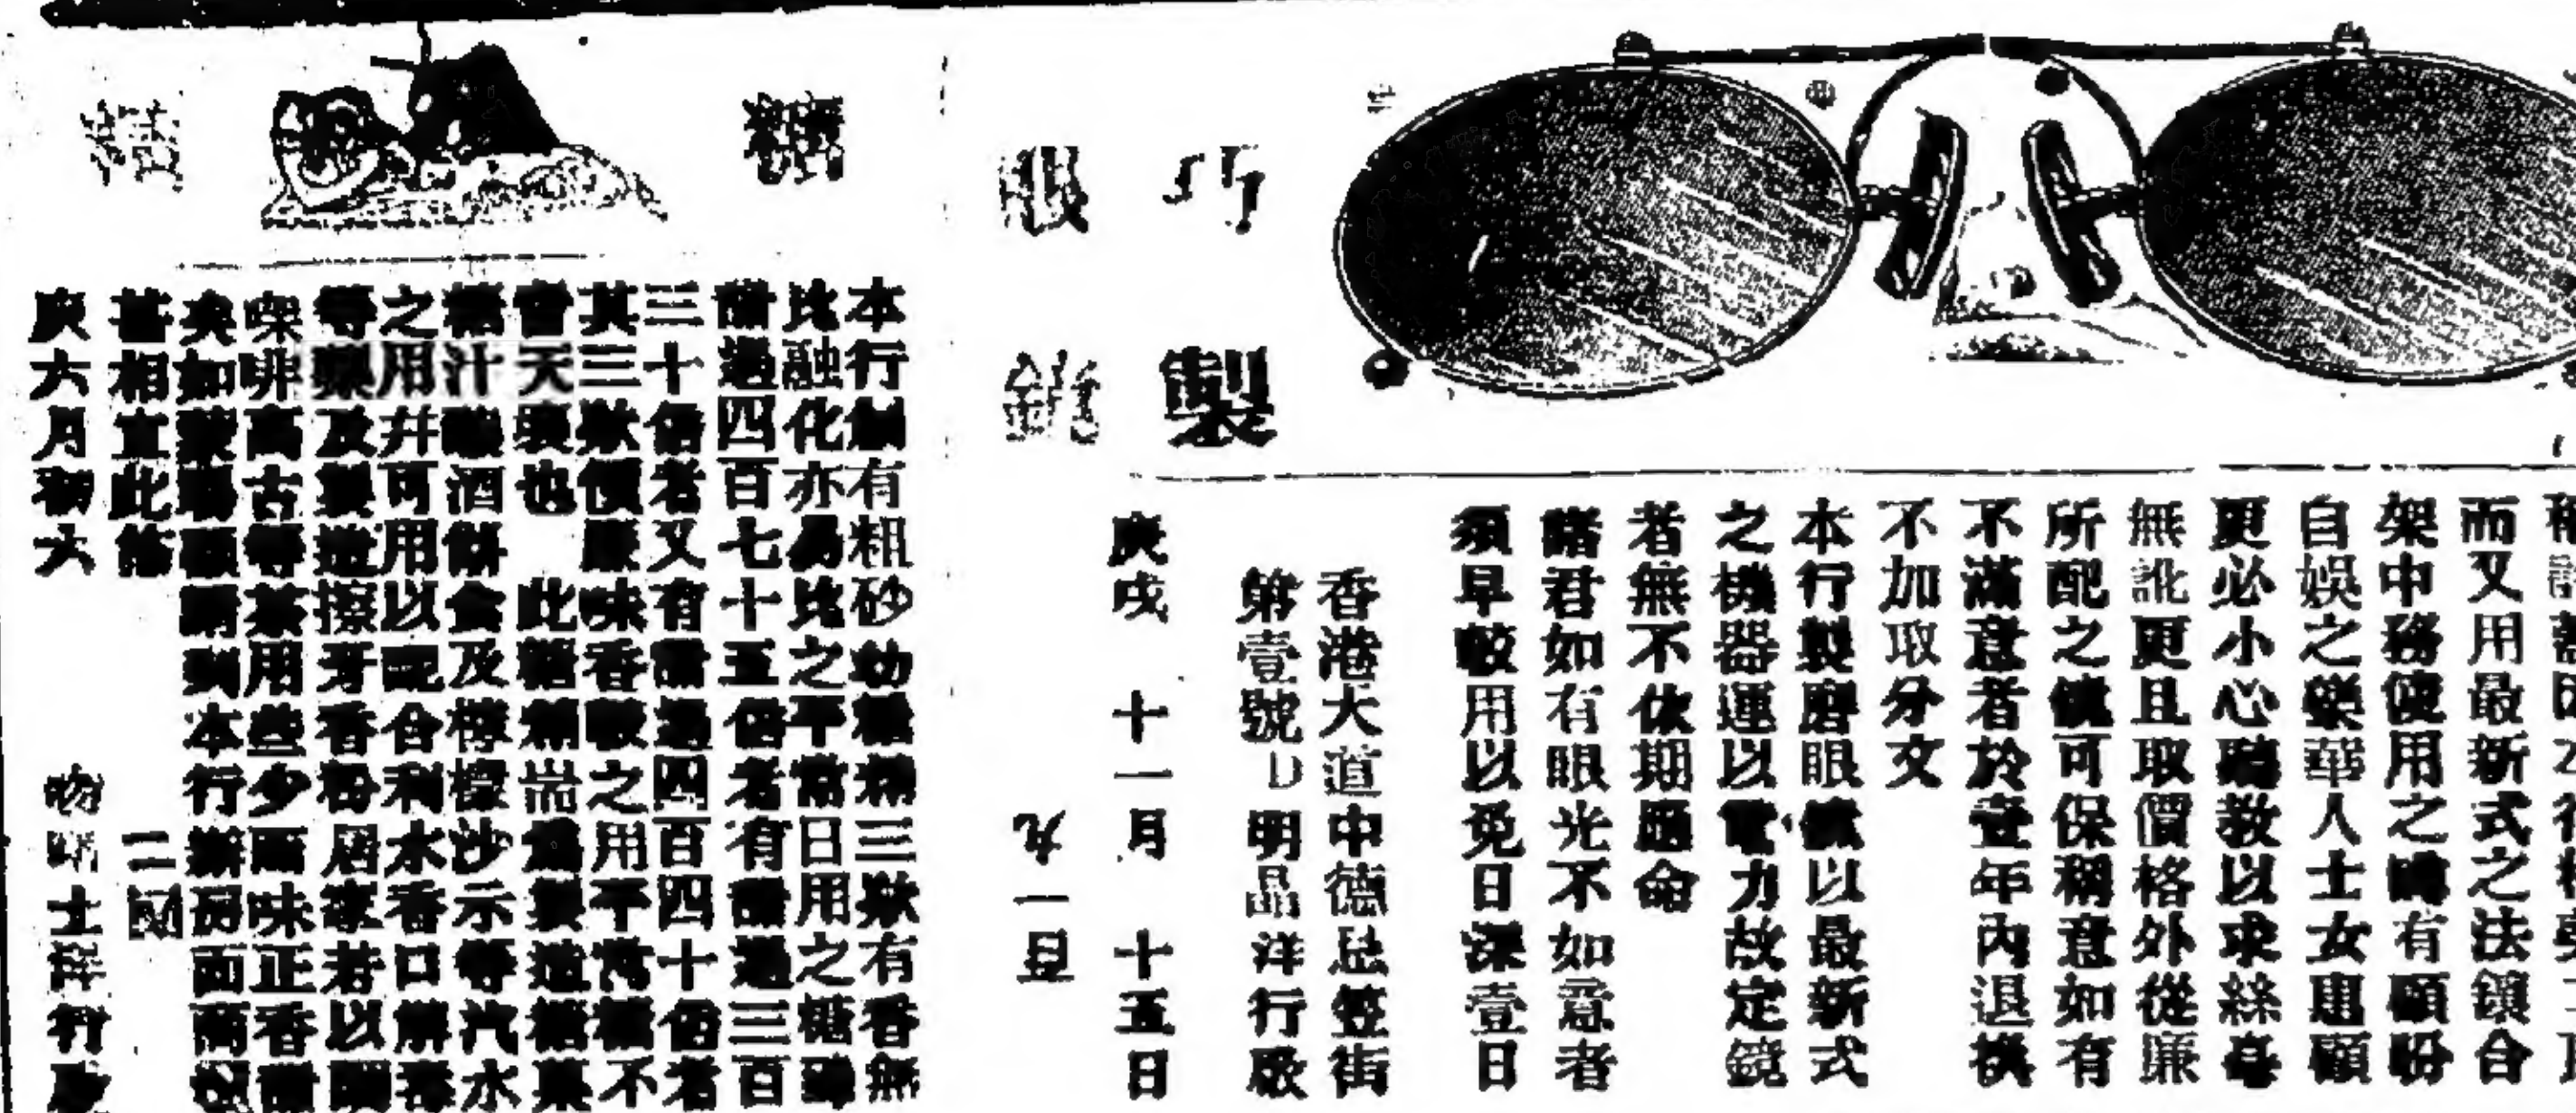 巧製
眼
而又用最新式之法鑲合
架中務使用之時有顧盼
自娛之樂華人士女惠顧
更必小心聽教以求絲毫
無訛更且取價格外從廉
所配之鏡可保稱意如有
不滿意者於壹年內退換
不加取分文
本行製磨眼鏡以最新式
之機器運以電力故定鏡
者無不依期應命
諸君如有眼光不如意者
須早較用以免日深壹日
香港大道中德忌笠街
第壹號D明晶洋行啟
庚戌十一月十五日
九一百
糖精
本行制有粗砂幼糖精三欵有香無
比融化亦易比之平常日用之糖
甜過四百七十五倍者有甜過三百
三十倍者又有甜過四百四十倍者
其三欵價廉味香較之用平常糖不
啻天壤也 此糖精耑為製造糖菓
糖汁釀酒餅食及檸檬沙示等汽水
之用并可用以配合利水香口解毒
等藥及製造擦牙香粉居家若以調
㗎啡高古等茶用些少而味正香甜
矣如蒙賜顧請到本行辦房面商
甚相宜此佈
二國
庚六月初六
士洋行啟